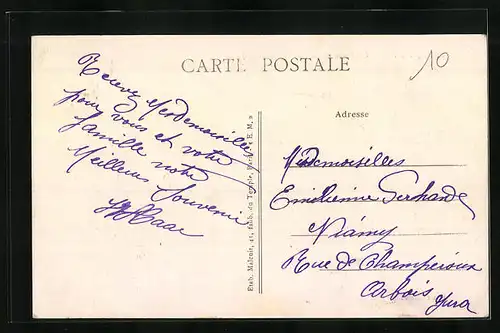 CARTE POSTALE
10
Recevez Mesdemoiselles
pour vous et votre
famille notre
Meilleur Souvenir
Adresse
Mesdemoiselles
Emilienne
Niámy
Rue de Champeroux
Arbois Jura
Etab. Malcuit, 41, faub. du Temple, Paris « E. M. »